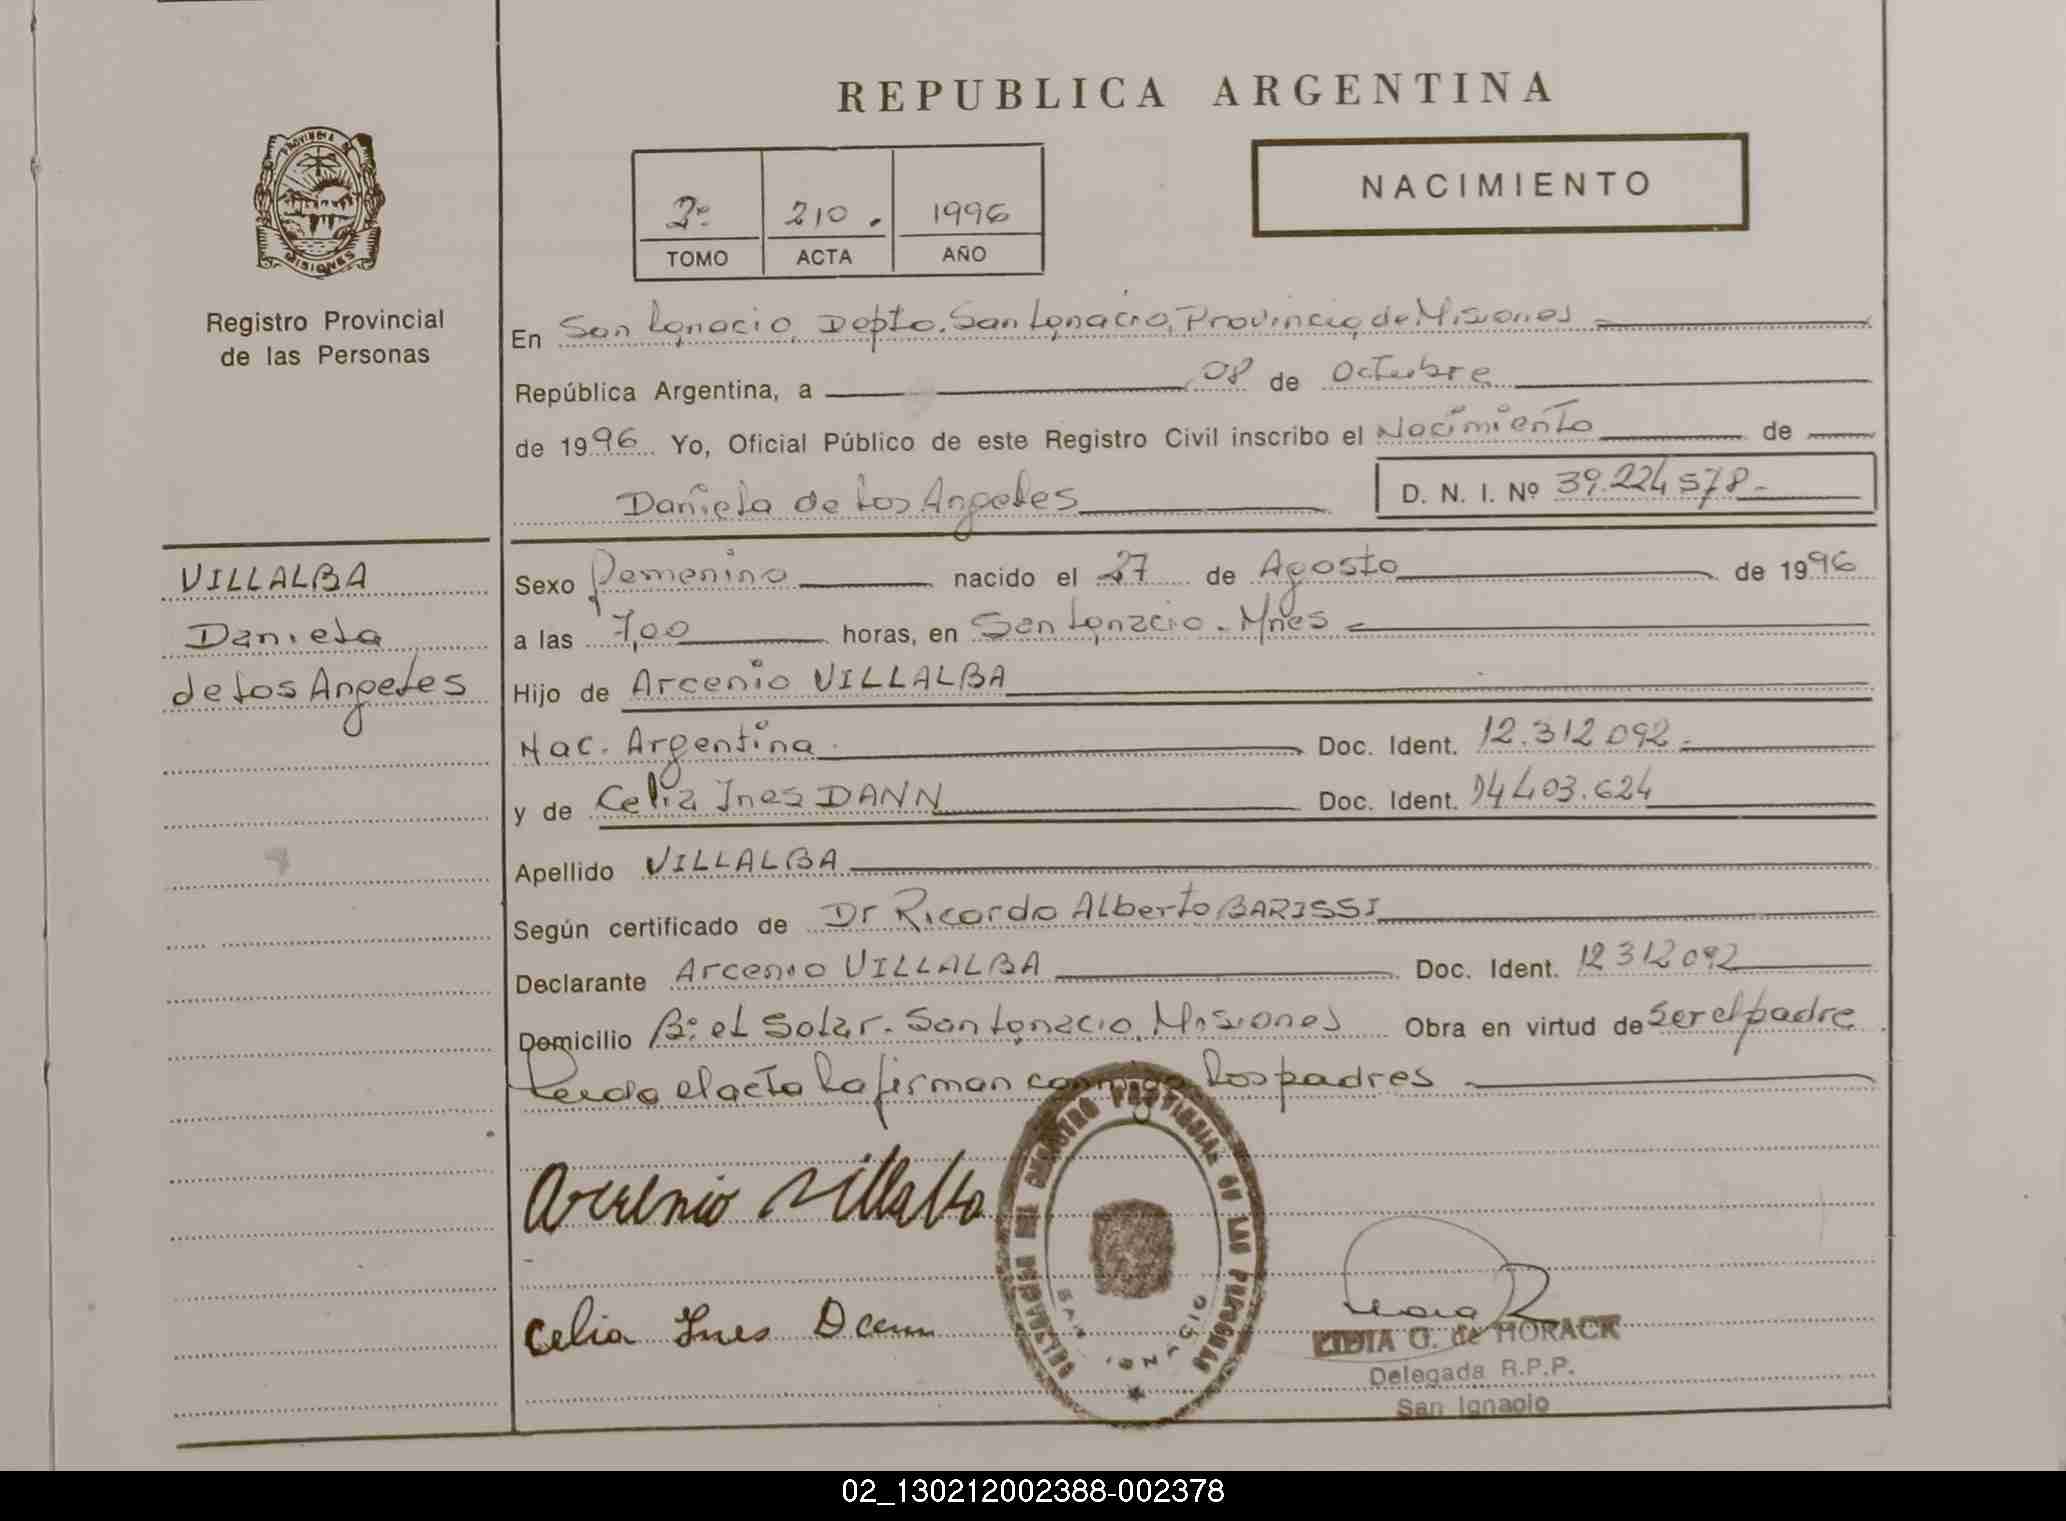 REPUBLICA ARGENTINA
PROVINCIA DE
MISIONES
Registro Provincial
de las Personas
2º 210. 1996
TOMO ACTA AÑO
NACIMIENTO
En San Ignacio, Depto. San Ignacio, Provincia de Misiones
República Argentina, a 08 de Octubre
de 1996 Yo, Oficial Público de este Registro Civil inscribo el Nacimiento de
Daniela de los Angeles
D. N. I. Nº 39.224.578-
VILLALBA
Daniela
de los Angeles
Sexo Femenino nacido el 27 de Agosto de 1996
a las 7,00 horas, en San Ignacio - Mnes -
Hijo de Arcenio VILLALBA
Nac. Argentina. Doc. Ident. 12.312.092.-
y de Celia Ines DANN Doc. Ident. 14.403.624
Apellido VILLALBA
Según certificado de Dr Ricardo Alberto BARISSI
Declarante Arcenio VILLALBA Doc. Ident. 12312092
Domicilio Bº el Solar. San Ignacio, Misiones Obra en virtud de ser el padre
Leida el acta la firman conmigo los padres
Arcenio Villalba
Celia Ines Dann
DELEGACION DEL REGISTRO PROVINCIAL DE LAS PERSONAS
SAN IGNACIO
LIDIA G. de HORACK
Delegada R.P.P.
San Ignacio
02_130212002388-002378